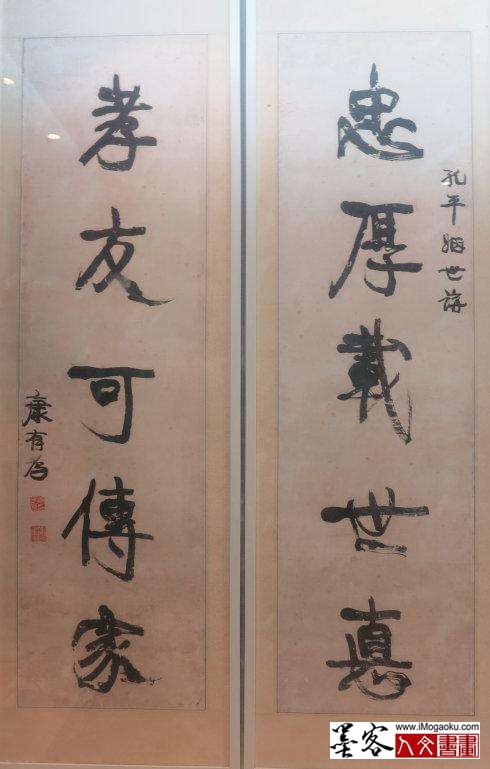 孔平姻世講
忠厚載世惪
孝友可傳家
康有為
墨客
www.iMogaoku.com
人文書畫